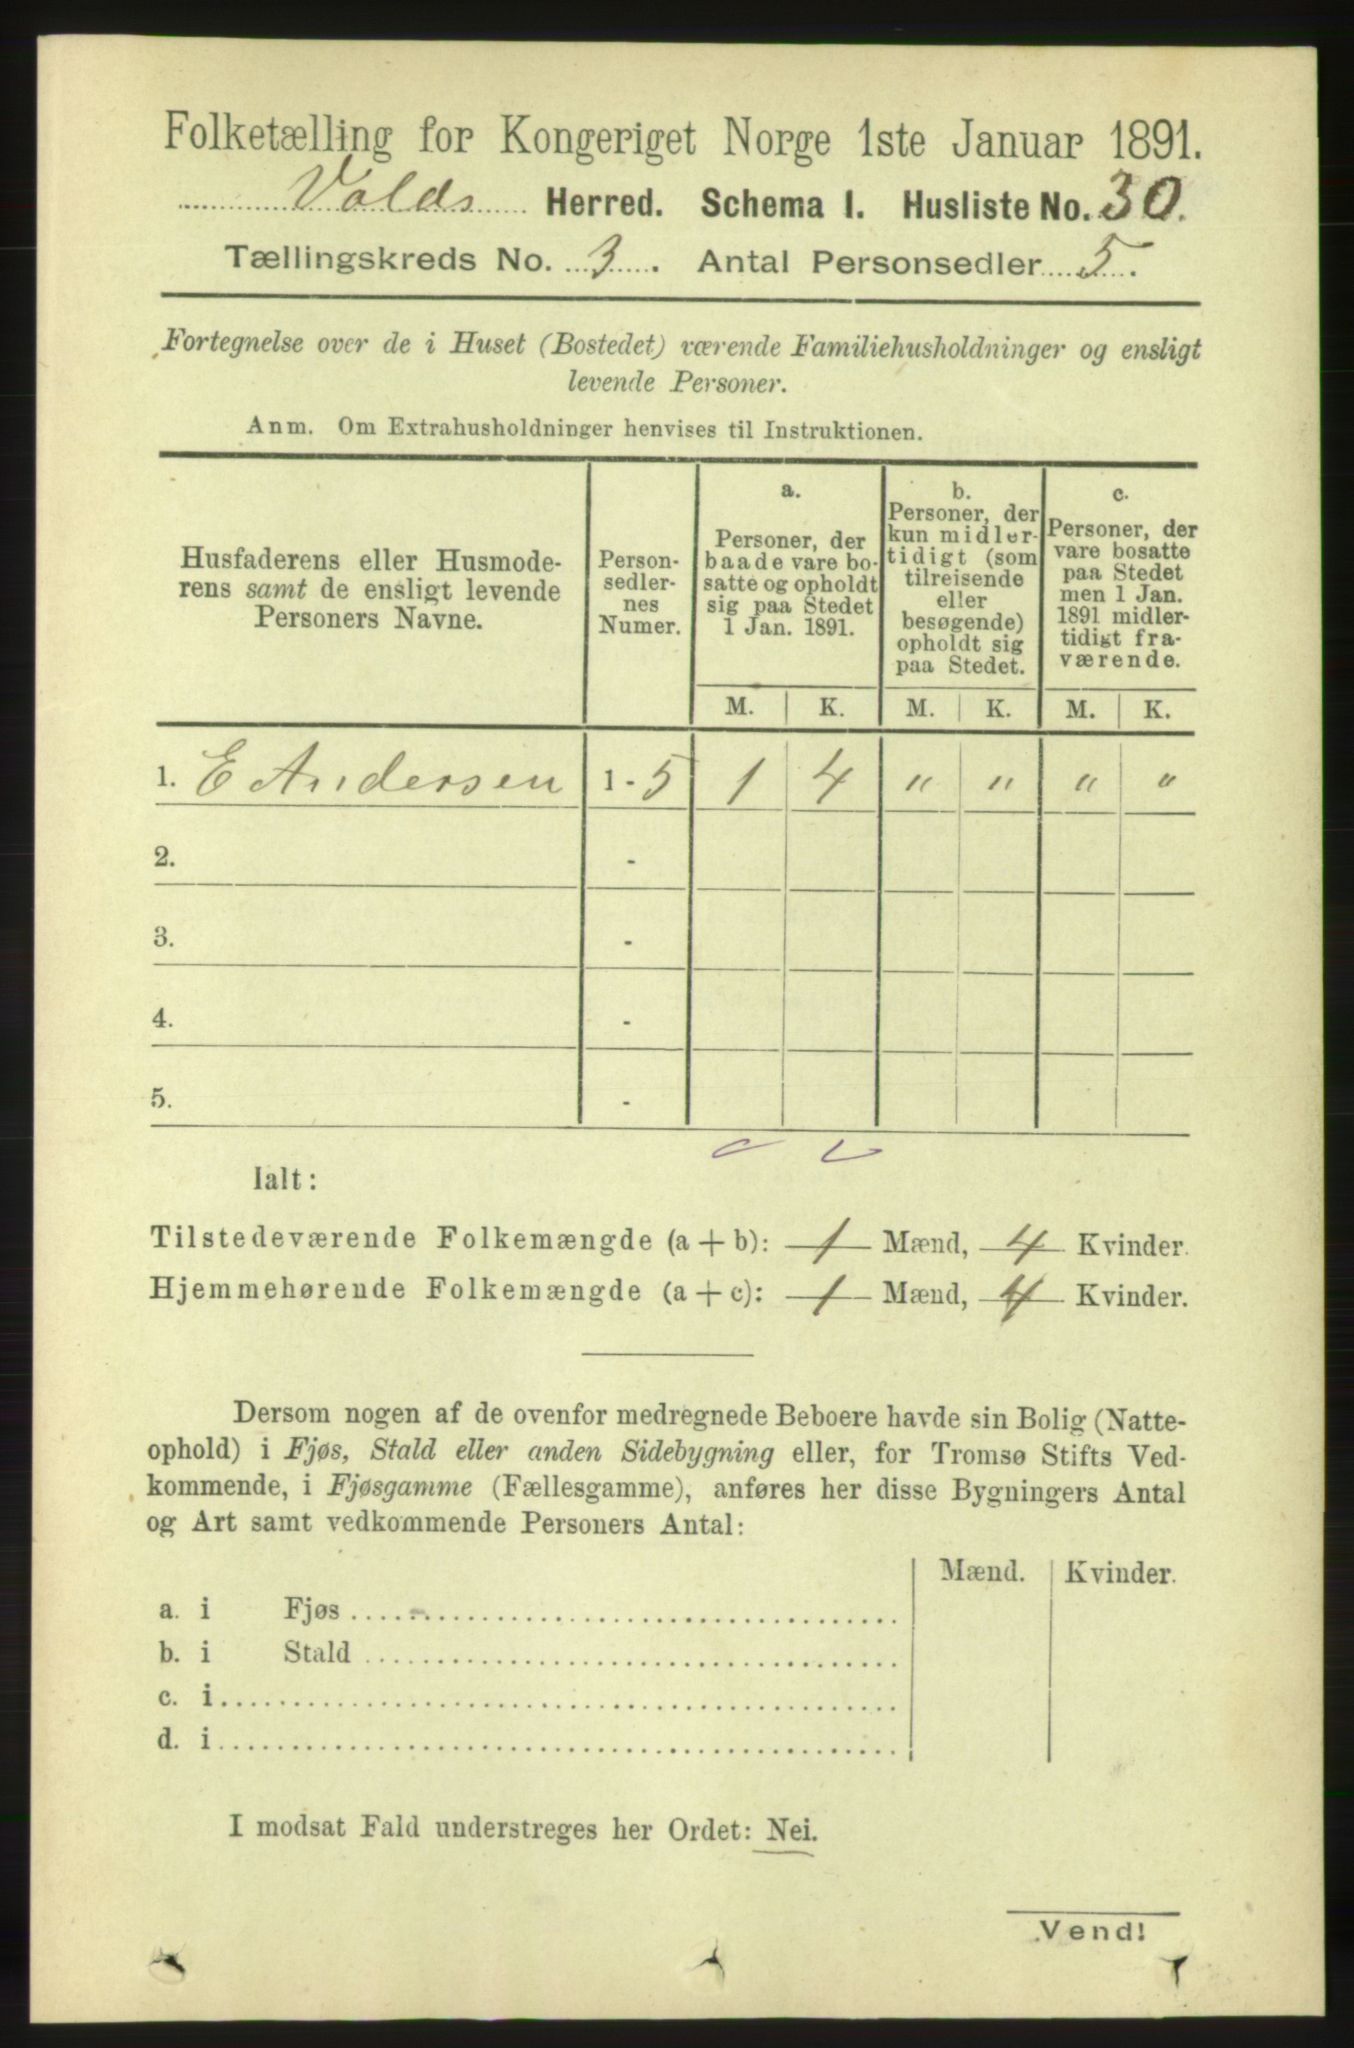 Folketælling for Kongeriget Norge 1ste Januar 1891.
Volds Herred. Schema I. Husliste No. 30.
Tællingskreds No. 3. Antal Personsedler 5.
Fortegnelse over de i Huset (Bostedet) værende Familiehusholdninger og ensligt
levende Personer.
Anm. Om Extrahusholdninger henvises til Instruktionen.
Husfaderens eller Husmode-
rens samt de ensligt levende
Personers Navne.
Person-
sedler-
nes
Numer.
a.
Personer, der
baade vare bo-
satte og opholdt
sig paa Stedet
1 Jan. 1891.
b.
Personer, der
kun midler-
tidigt (som
tilreisende
eller
besøgende)
opholdt sig
paa Stedet.
c.
Personer, der
vare bosatte
paa Stedet
men 1 Jan.
1891 midler-
tidigt fra-
værende.
M. K. M. K. M. K.
1. E Andersen 1-5 1 4 " " " "
2. -
3. -
4. -
5. -
Ialt:
Tilstedeværende Folkemængde (a + b): 1 Mænd, 4 Kvinder.
Hjemmehørende Folkemængde (a + c): 1 Mænd, 4 Kvinder.
Dersom nogen af de ovenfor medregnede Beboere havde sin Bolig (Natte-
ophold) i Fjøs, Stald eller anden Sidebygning eller, for Tromsø Stifts Ved-
kommende, i Fjøsgamme (Fællesgamme), anføres her disse Bygningers Antal
og Art samt vedkommende Personers Antal:
Mænd. Kvinder.
a. i Fjøs
b. i Stald
c. i
d. i
I modsat Fald understreges her Ordet: Nei.
Vend!